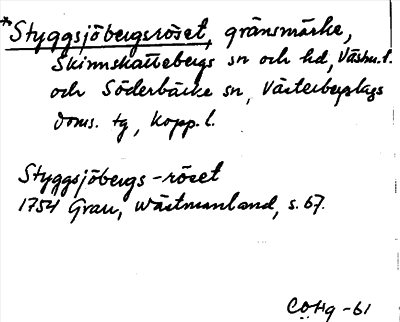 *Styggsjöbergsröset, gränsmärke,
Skinnskattebergs sn och hd, Västm.l.
och Söderbärke sn, Västerbergslags
doms. tg, Kopp. l.
Styggsjöbergs-röset
1754 Grau, Wästmanland, s. 67.
COHg -61